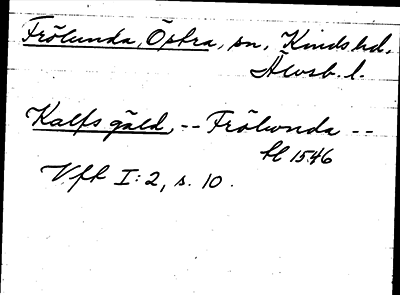 Frölunda, Östra, sn, Kinds hd.
Älvsb. l.
Kalfs gäld, -- Frölunda --
1546
Vfk I:2, s. 10.